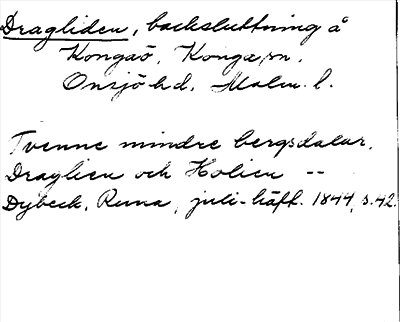 Dragliden, backsluttning å
Kongaö, Konga sn,
Onsjö hd, Malm. l.
Tvenne mindre bergsdalar,
Draglien och Holien --
Dybeck, Runa, juli-häft. 1844, s.42.